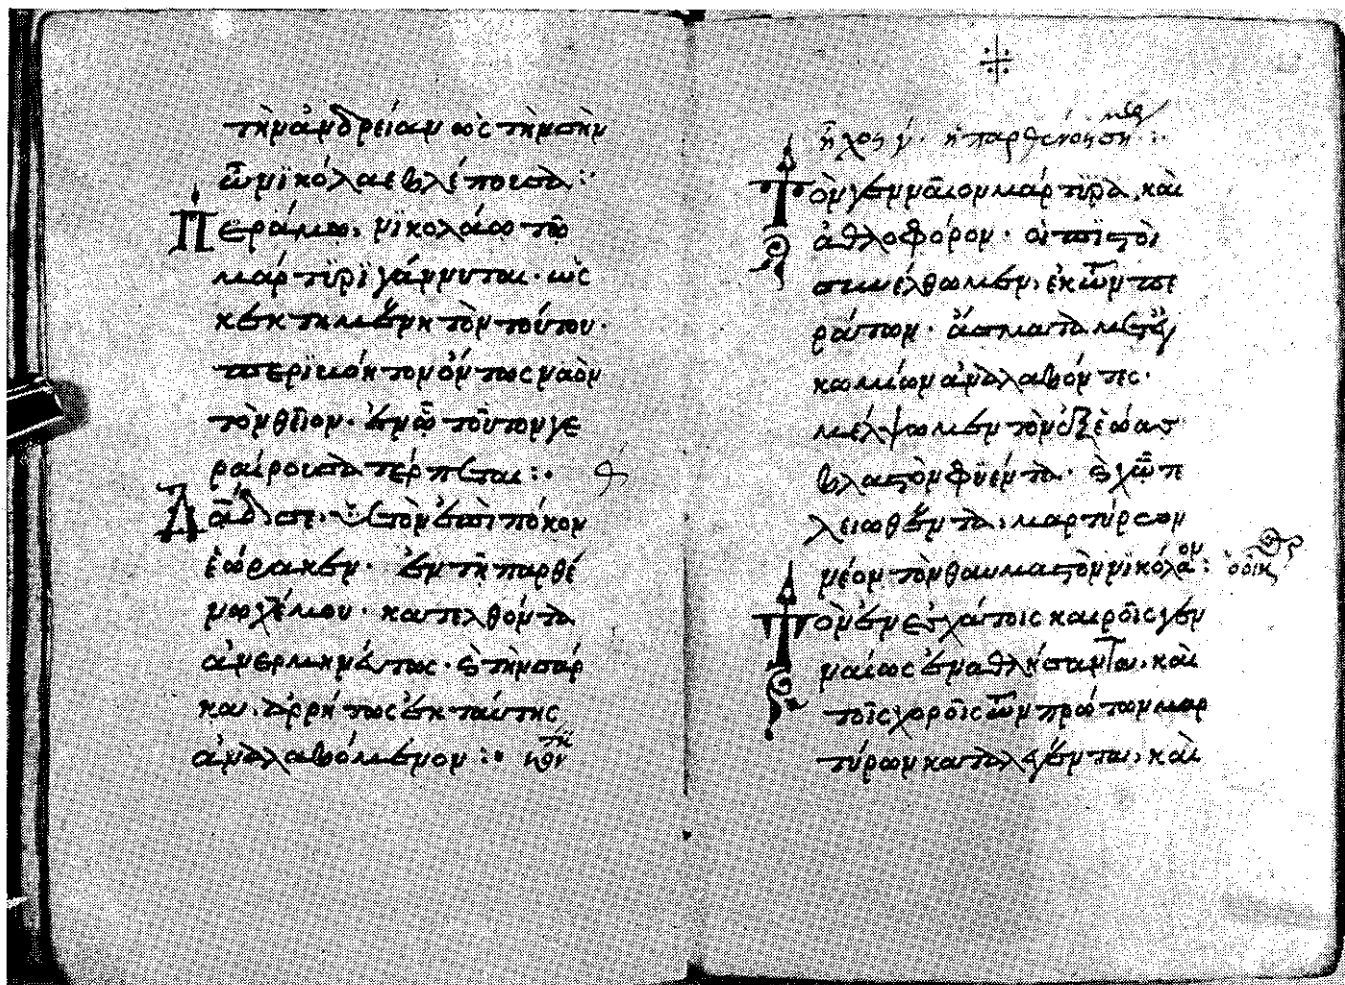 τὴν ἀνδρείαν ὡς τὴν σὴν
ὦ νϊκόλαε βλέπουσα :·
Περάμω, νϊκολάω τῶ
μάρτυρϊ γάννυται· ὡς
κεκτημένη τὸν τούτου·
περϊκὠν ὄντως ναὸν
τὸν θεῖον· ἐν ὧ τοῦτον γε
ραίρουσα τέρπεται :·
ἐώρακεν· ἐν τῆ παρθέ
κατελθόντα
καὶ ἀρρήτως ἐκ ταύτης
ἀναλαβόμενον :·
ἦχος γ· ἡ παρθένος σή :·
Τὸν γενναῖον μάρτυρα, καὶ
ἀθλοφόρον· οἱ πιστοὶ
συνέλθωμεν, ἐκ τῶν πε
ράτων· ἄσματα μετ'
ἐγκωμίων ἀναλαβόντες·
μέλψωμεν τὸν ἐξ ἑώας
βλαστὸν φυέντα· τε
λειωθέντα, μαρτύρων
νέον τὸν θαυμαστὸν νϊκόλαον : ὁ οἶκος
Τὸν ἐν ἐσχάτοις καιροῖς γεν
ναίως ἐναθλήσαντα, καὶ
τοῖς χοροῖς τῶν πρώτων μαρ
τύρων καταλεγέντα, καὶ